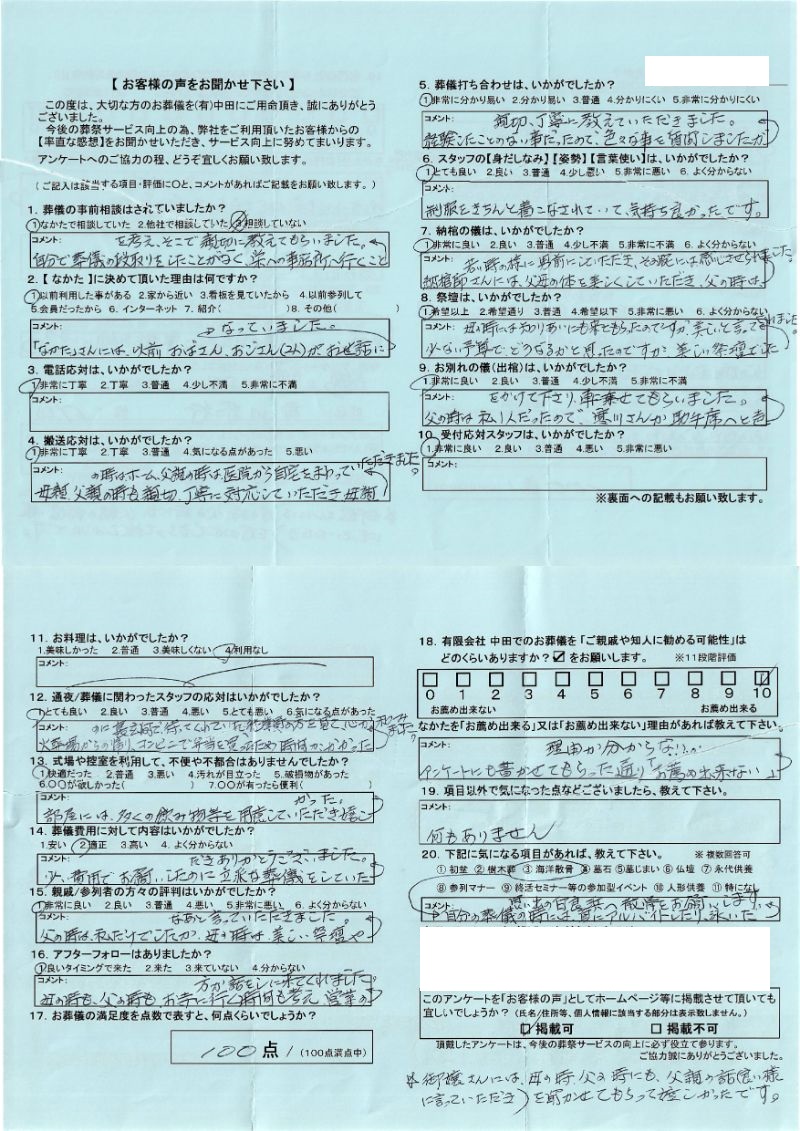 【 お客様の声をお聞かせ下さい 】
この度は、大切な方のお葬儀を(有)中田にご用命頂き、誠にありがとう
ございました。
今後の葬祭サービス向上の為、弊社をご利用頂いたお客様からの
【率直な感想】をお聞かせいただき、サービス向上に努めてまいります。
アンケートへのご協力の程、どうぞ宜しくお願い致します。
(ご記入は該当する項目・評価に○と、コメントがあればご記載をお願い致します。)
1. 葬儀の事前相談はされていましたか?
1.なかたで相談していた 2.他社で相談していた 3.相談していない
コメント: を考え、そこで親切に教えてもらいました。
自分で葬儀の段取りをしたことがなく、栄への事務所へ行くこと
2. 【なかた 】に決めて頂いた理由は何ですか?
1.以前利用した事がある 2.家から近い 3.看板を見ていたから 4.以前参列して
5.会員だったから 6.インターネット 7.紹介( )8.その他( )
コメント: なっていました。
「なかた」さんには、以前おばさん、おじさん(2人)がお世話に
3. 電話応対は、いかがでしたか?
1.非常に丁寧 2.丁寧 3.普通 4.少し不満 5.非常に不満
コメント:
4. 搬送応対は、いかがでしたか?
1.非常に丁寧 2.丁寧 3.普通 4.気になる点があった 5.悪い
コメント: の時はホーム、父親の時は、医院から自宅をまわっていただきました。
母親、父親の時も親切、丁寧に対応していただき 母親
5. 葬儀打ち合わせは、いかがでしたか?
1.非常に分かり易い 2.分かり易い 3.普通 4.分かりにくい 5.非常に分かりにくい
コメント: 親切、丁寧に教えていただきました。
経験したことのない事だったので、色々な事を質問しましたが
6. スタッフの【身だしなみ】【姿勢】【言葉使い】は、いかがでしたか?
1.とても良い 2.良い 3.普通 4.少し悪い 5.非常に悪い 6.よく分からない
コメント:
制服をきちんと着こなされていて、気持ち良かったです。
7. 納棺の儀は、いかがでしたか?
1.非常に良い 2.良い 3.普通 4.少し不満 5.非常に不満 6.よく分からない
コメント: 若い時の様に男前にしていただき、その腕には感心させられました。
納棺師さんには、父母の体を美しくしていただき、父の時は、
8. 祭壇は、いかがでしたか?
1.希望以上 2.希望通り 3.普通 4.希望以下 5.非常に悪い 6.よく分からない
コメント: 母の時には知りあいにも来てもらったのですが 美しいと言って
少ない予算で、どうなるかと思ったのですが、美しい祭壇でした
9. お別れの儀(出棺)は、いかがでしたか?
1.非常に良い 2.良い 3.普通 4.少し不満 5.非常に不満
コメント: をかけて下さり、車に乗せてもらいました。
父の時は私1人だったので、寒川さんが助手席へと声
10. 受付応対スタッフは、いかがでしたか?
1.非常に良い 2.良い 3.普通 4.悪い 5.非常に悪い
コメント:
※裏面への記載もお願い致します。
11. お料理は、いかがでしたか?
1.美味しかった 2.普通 3.美味しくない 4.利用なし
コメント:
12. 通夜/葬儀に関わったスタッフの応対はいかがでしたか?
1.とても良い 2.良い 3.普通 4.悪い 5.とても悪い 6.気になる点があった
コメント: のに裏玄関で、待ってくれていた 方を見て、心がなごみました。
火葬場からの帰り、コンビニで弁当を買ったため時間がかかった
13. 式場や控室を利用して、不便や不都合はありませんでしたか?
1.快適だった 2.普通 3.悪い 4.汚れが目立った 5.破損物があった
6.○○が欲しかった( )7.○○が有ったら便利( )
コメント: かった。
部屋には、多くの飲み物等を用意していただき嬉し
14. 葬儀費用に対して内容はいかがでしたか?
1.安い 2.適正 3.高い 4.よく分からない
コメント: だきありがとうございました。
少い費用でお願いしたのに立派な葬儀をしていた
15. 親戚/参列者の方々の評判はいかがでしたか?
1.非常に良い 2.良い 3.普通 4.悪い 5.非常に悪い 6.よく分からない
コメント: なあと言っていただきました。
父の時は、私だけでしたが、母の時は、美しい祭壇や
16. アフターフォローはありましたか?
1.良いタイミングで来た 2.来た 3.来ていない 4.分からない
コメント: 方が話をしに来てくれました。
母の時も、父の時も、お寺に行く時間も考え、営業の
17. お葬儀の満足度を点数で表すと、何点くらいでしょうか?
100点! (100点満点中)
18. 有限会社 中田でのお葬儀を「ご親戚や知人に勧める可能性」は
どのくらいありますか? ☑ をお願いします。 ※11段階評価
0 1 2 3 4 5 6 7 8 9 10
お薦め出来ない お薦め出来る
なかたを「お薦め出来る」又は「お薦め出来ない」理由があれば教えて下さい。
コメント: 理由が分からない!!
アンケートにも書かせてもらった通り「お薦め出来ない」
19. 項目以外で気になった点などございましたら、教えて下さい。
コメント:
何もありません
20. 下記に気になる項目があれば、教えて下さい。 ※ 複数回答可
① 初盆 ② 樹木葬 ③ 海洋散骨 ④ 墓石 ⑤墓じまい ⑥ 仏壇 ⑦ 永代供養
⑧ 参列マナー ⑨ 終活セミナー等の参加型イベント ⑩ 人形供養 ⑪ 特になし
コメント: 思い出の日良浜へ散骨をお願いします。
自分の葬儀の時には、夏にアルバイトしたり、泳いだ
このアンケートを「お客様の声」としてホームページ等に掲載させて頂いても
宜しいでしょうか? (氏名/住所等、個人情報に該当する部分は表示致しません。)
☑ 掲載可 □ 掲載不可
頂戴したアンケートは、今後の葬祭サービスの向上に必ず役立て参ります。
ご協力誠にありがとうございました。
※御嬢さんには、母の時、父の時にも、父親の話(良い様
に言っていただき)を聞かせてもらって嬉しかったです。